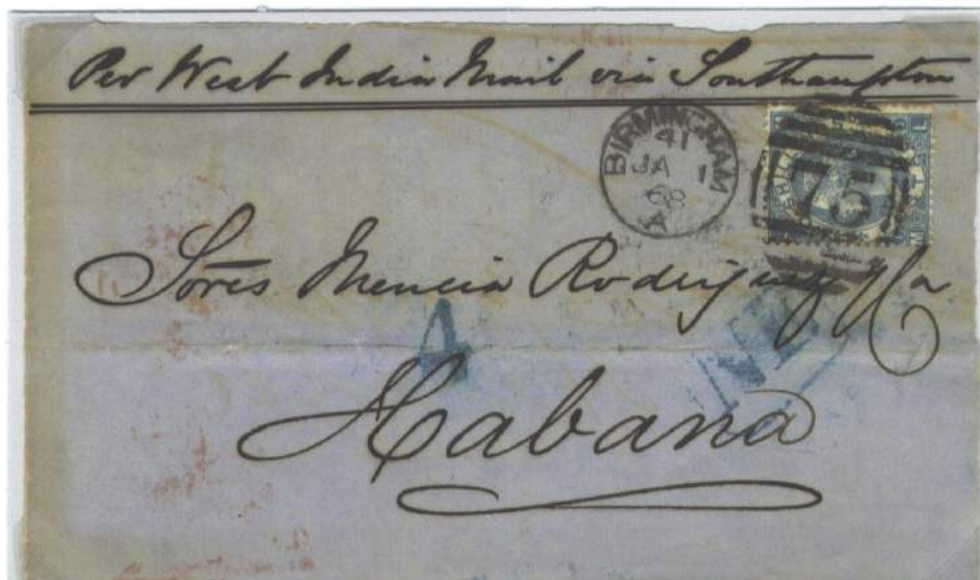 Per West India Mail via Southampton
BIRMINGHAM
41
JA 1
68
A
75
Sores Mencia Rodriguez y Ca
4
Habana